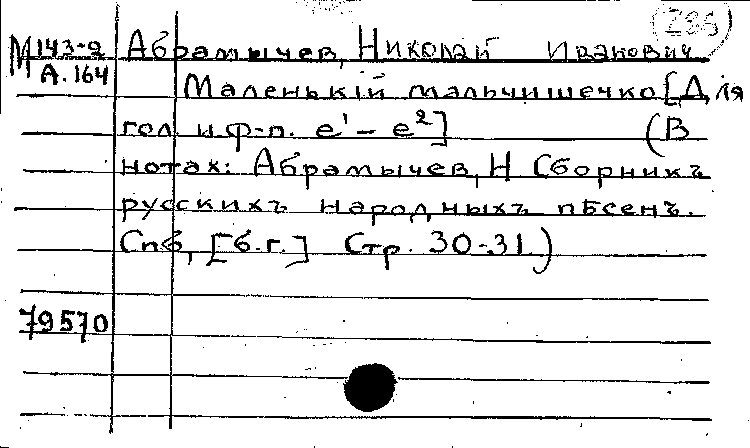 (286)
М 143-2 Абрамычев, Николай Иванович
А. 164
Маленькій мальчишечко [Для
гол. и ф-п. e¹ – e²] (В
нотах: Абрамычев, Н Сборникъ
русскихъ народныхъ пѣсенъ.
Спб, [б.г.] Стр. 30-31.)
79570